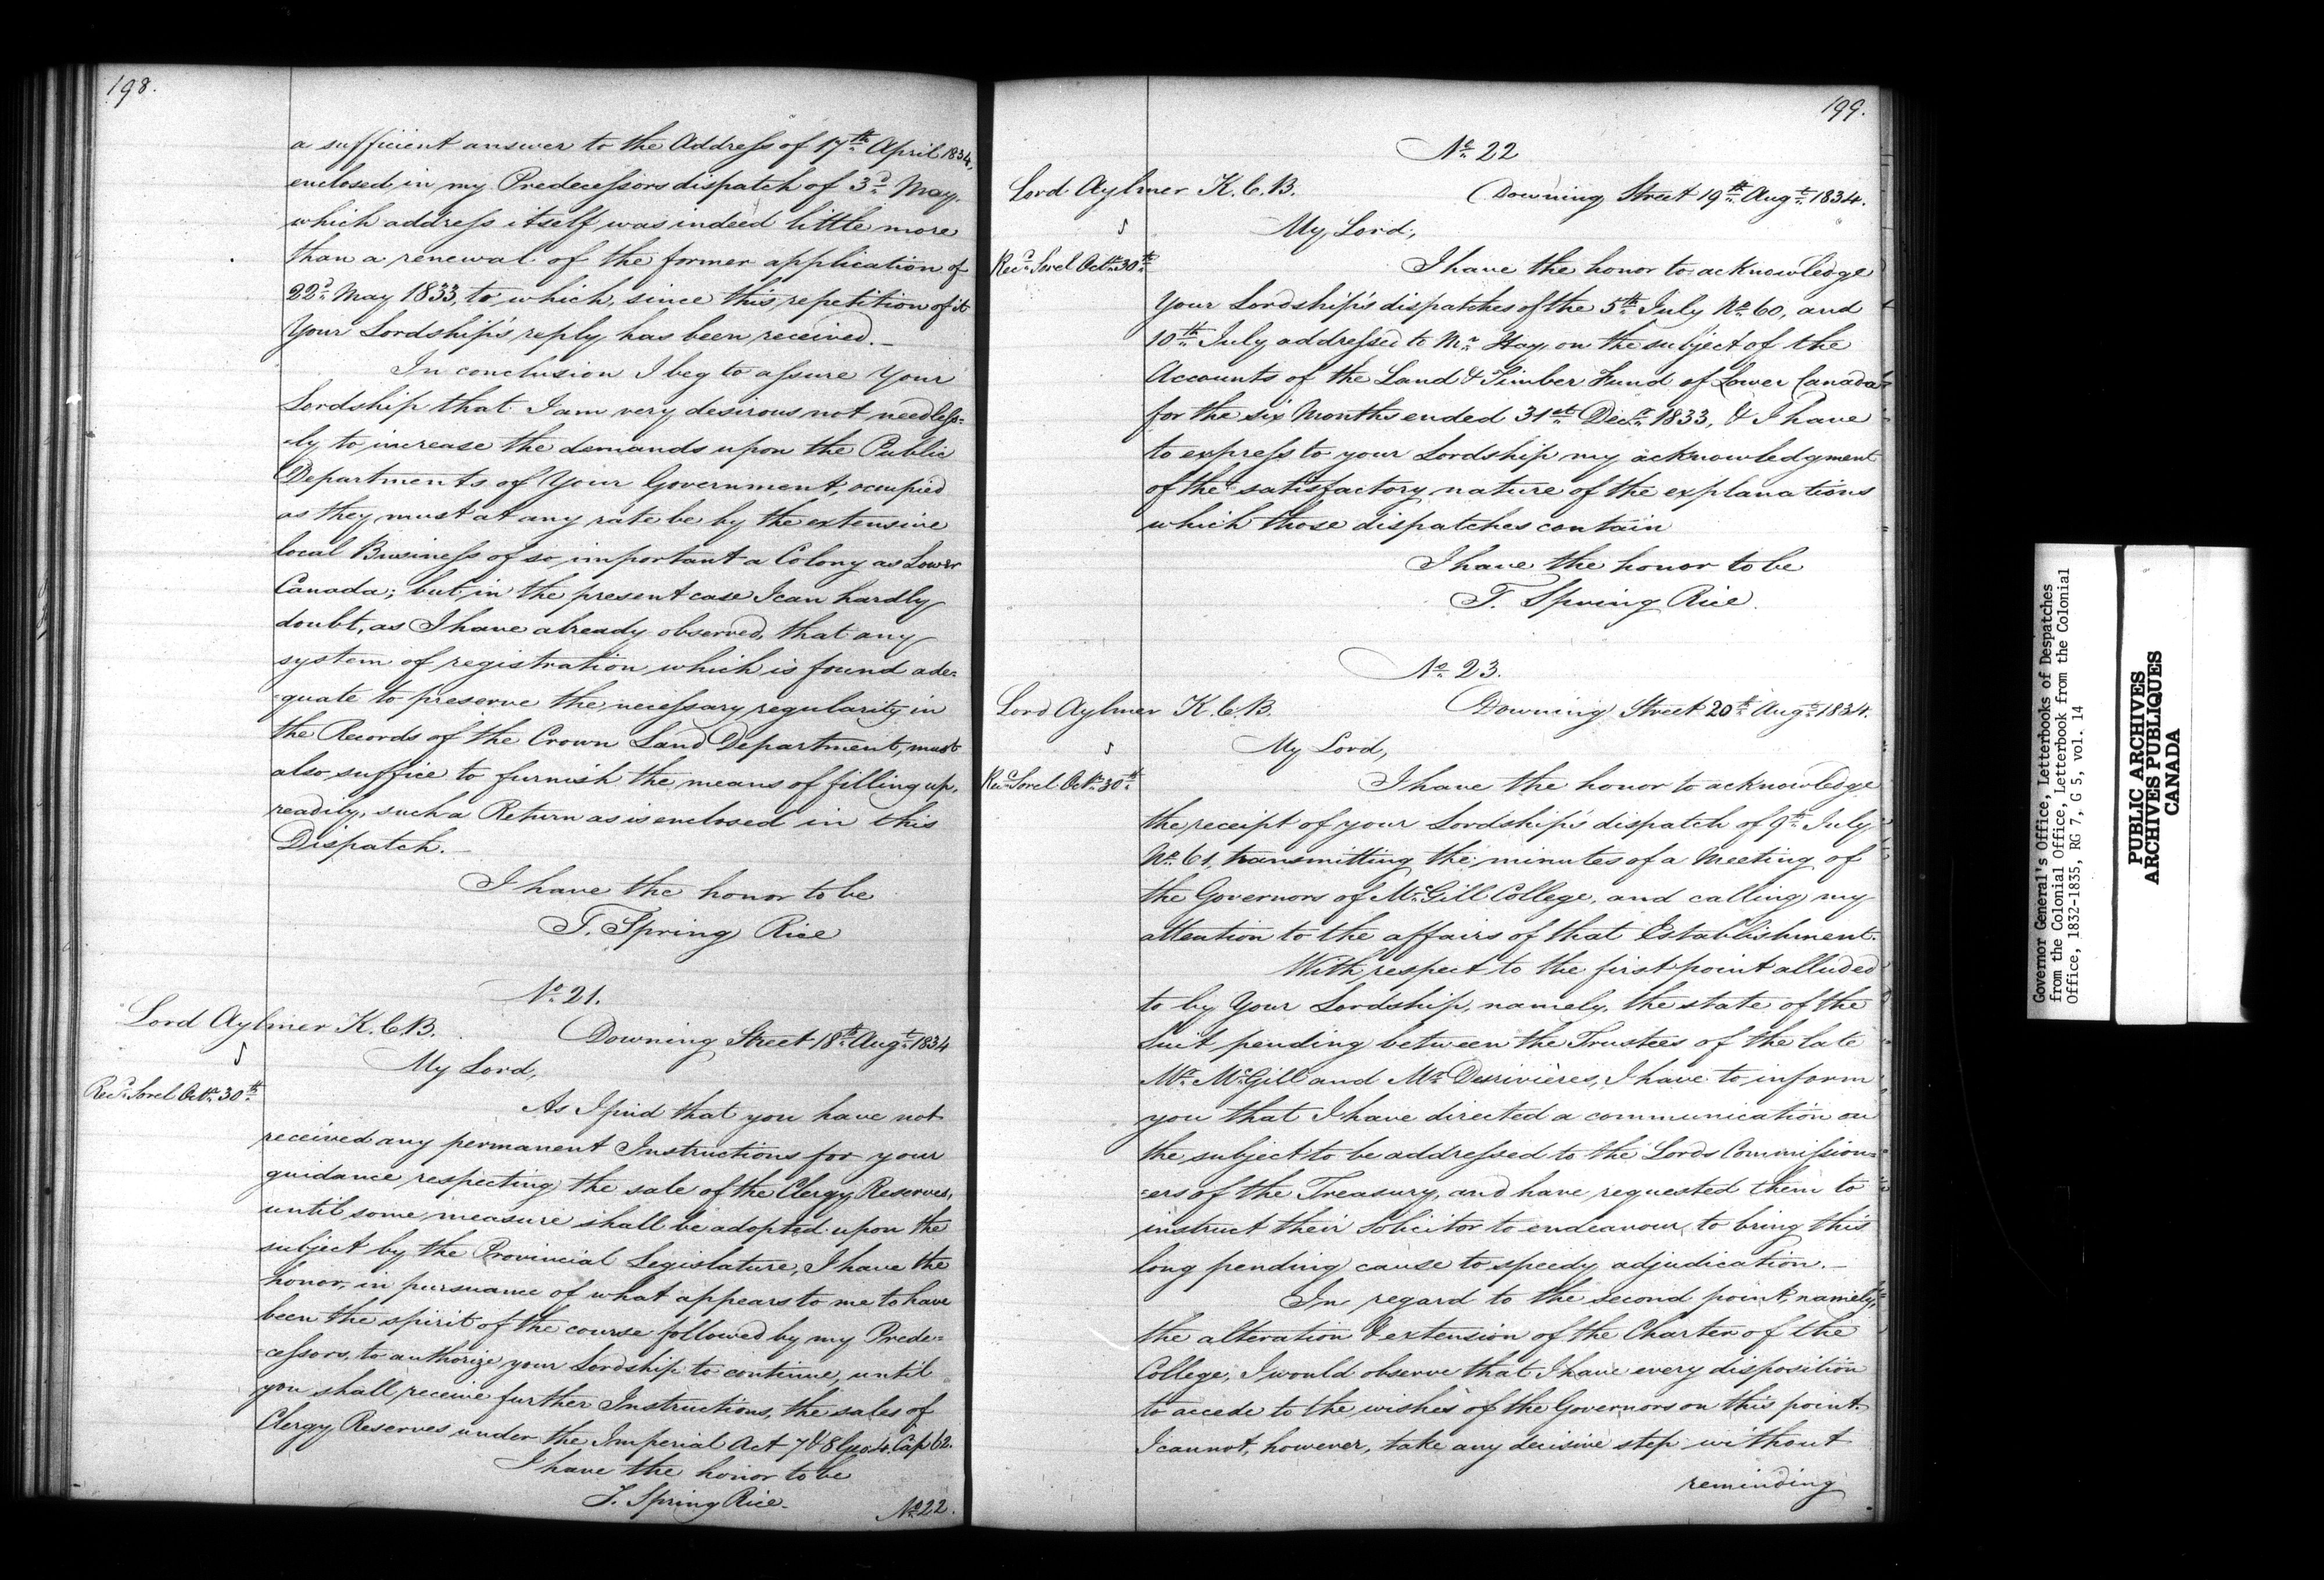 198.
a sufficient answer to the Address of 17th April 1834,
enclosed in my Predecessors dispatch of 3d May,
which address itself was indeed little more
than a renewal of the former application of
22d May 1833, to which, since this repetition of it
Your Lordship's reply has been received.—
In conclusion I beg to assure Your
Lordship that I am very desirous not needless=
=ly to increase the demands upon the Public
Departments of Your Government, occupied
as they must at any rate be by the extensive
local Business of so important a Colony as Lower
Canada; but in the present case I can hardly
doubt, as I have already observed, that any
system of registration which is found ade=
=quate to preserve the necessary regularity in
the Records of the Crown Land Department, must
also suffice to furnish the means of filling up,
readily, such a Return as is enclosed in this
Dispatch.—
I have the honor to be
T. Spring Rice
No. 21.
Lord Aylmer K.C.B.
Downing Street 18th Augt. 1834
My Lord,
Recd. Sorel Octr. 30th
As I find that you have not
received any permanent Instructions for your
guidance respecting the sale of the Clergy Reserves,
until some measure shall be adopted upon the
subject by the Provincial Legislature, I have the
honor, in pursuance of what appears to me to have
been the spirit of the course followed by my Prede=
=cessors, to authorize your Lordship to continue, until
you shall receive further Instructions, the sales of
Clergy Reserves under the Imperial Act 7 & 8 Geo. 4. Cap 62.
I have the honor to be
T. Spring Rice.
No. 22.
199.
No. 22
Lord Aylmer K.C.B.
Downing Street 19th Augt. 1834.
My Lord,
Recd. Sorel Octr. 30th
I have the honor to acknowledge
Your Lordship's dispatches of the 5th July No. 60, and
10th July addressed to Mr. Hay, on the subject of the
Accounts of the Land & Timber Fund of Lower Canada
for the six Months ended 31st Decr. 1833, & I have
to express to your Lordship my acknowledgment
of the satisfactory nature of the explanations
which those dispatches contain
I have the honor to be
T. Spring Rice.
No. 23.
Lord Aylmer K.C.B.
Downing Street 20th Augt. 1834.
My Lord,
Recd. Sorel Octr. 30th
I have the honor to acknowledge
the receipt of your Lordship's dispatch of 9th July
No. 61, transmitting the minutes of a Meeting of
the Governors of McGill College, and calling my
attention to the affairs of that Establishment.
With respect to the first point alluded
to by Your Lordship, namely, the state of the
Suit pending between the Trustees of the late
Mr. McGill and Mr. Desrivières, I have to inform
you that I have directed a communication on
the subject to be addressed to the Lords Commission=
=ers of the Treasury, and have requested them to
instruct their Solicitor to endeavour to bring this
long pending cause to speedy adjudication.—
In regard to the second point, namely,
the alteration & extension of the Charter of the
College, I would observe that I have every disposition
to accede to the wishes of the Governors on this point.
I cannot, however, take any decisive step without
reminding
Governor General's Office, Letterbooks of Despatches
from the Colonial Office, Letterbook from the Colonial
Office, 1832-1835, RG 7, G 5, vol. 14
PUBLIC ARCHIVES
ARCHIVES PUBLIQUES
CANADA